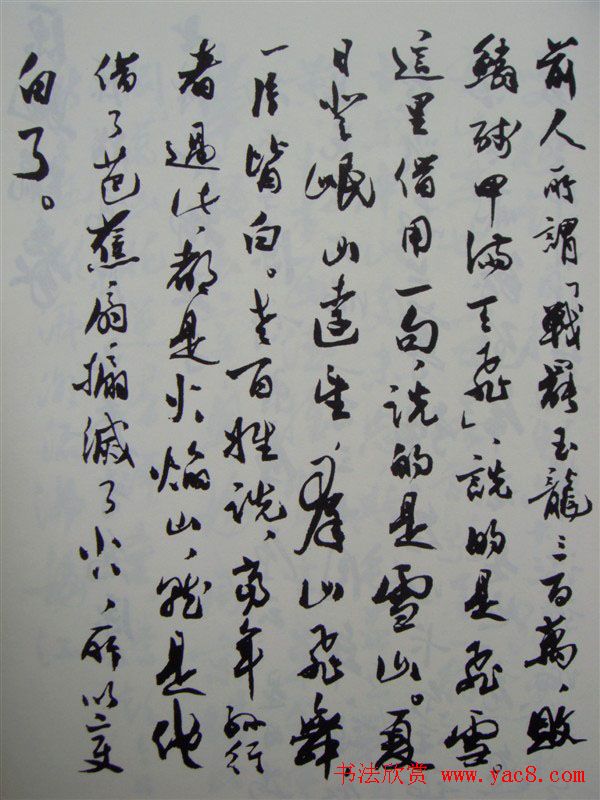 前人所謂「戰罷玉龍三百萬、敗
鱗殘甲滿天飛」、説的是飛雪。
這里借用一句、説的是雪山。夏
日登岷山遠望、羣山飛舞
一片皆白。老百姓説、當年孫行
者過此、都是火焰山、就是他
借了芭蕉扇搧滅了火、所以變
白了。
书法欣赏 www.yac8.com